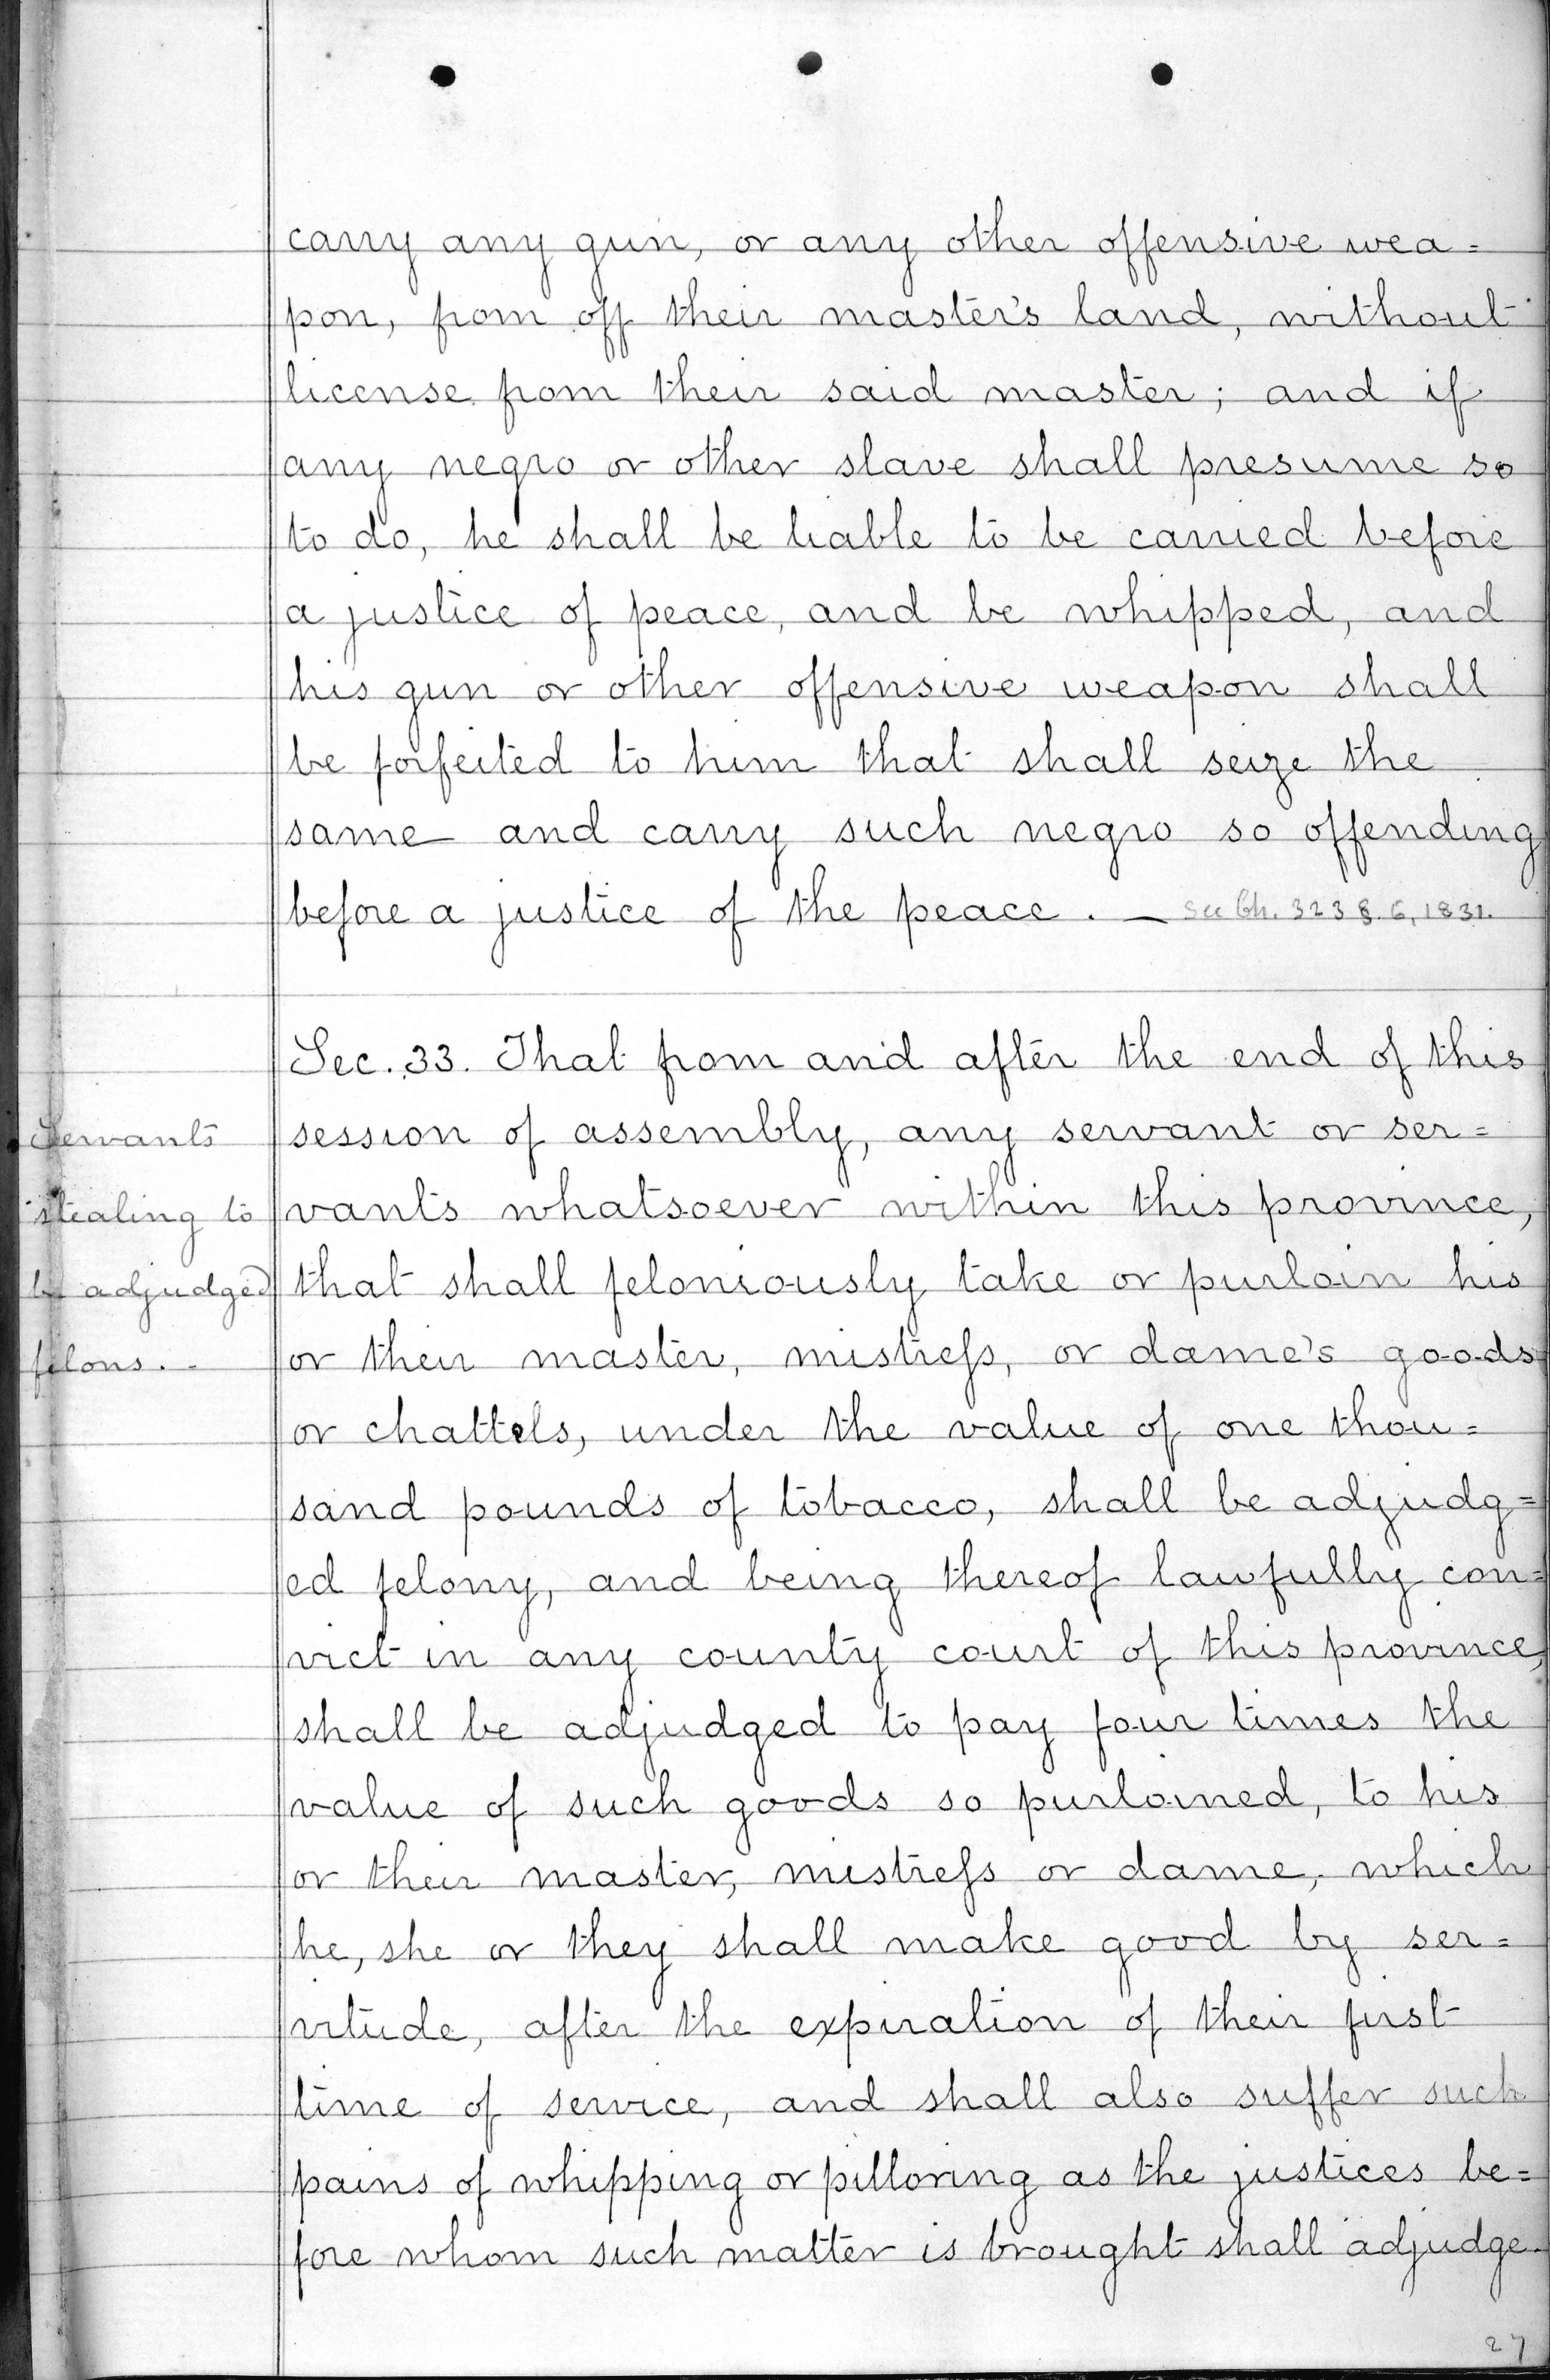 carry any gun, or any other offensive wea=
pon, from off their master's land, without
license from their said master; and if
any negro or other slave shall presume so
to do, he shall be liable to be carried before
a justice of peace, and be whipped, and
his gun or other offensive weapon shall
be forfeited to him that shall seize the
same and carry such negro so offending
before a justice of the peace. — See Ch. 323 §. 6, 1831.
Sec. 33. That from and after the end of this
session of assembly, any servant or ser=
vants whatsoever within this province,
that shall feloniously take or purloin his
or their master, mistreſs, or dame's goods
or chattels, under the value of one thou=
sand pounds of tobacco, shall be adjudg=
ed felony, and being thereof lawfully con=
vict in any county court of this province,
shall be adjudged to pay four times the
value of such goods so purloined, to his
or their master, mistreſs or dame, which
he, she or they shall make good by ser=
vitude, after the expiration of their first
time of service, and shall also suffer such
pains of whipping or pilloring as the justices be=
fore whom such matter is brought shall adjudge.
Servants
stealing to
be adjudged
felons. -
27